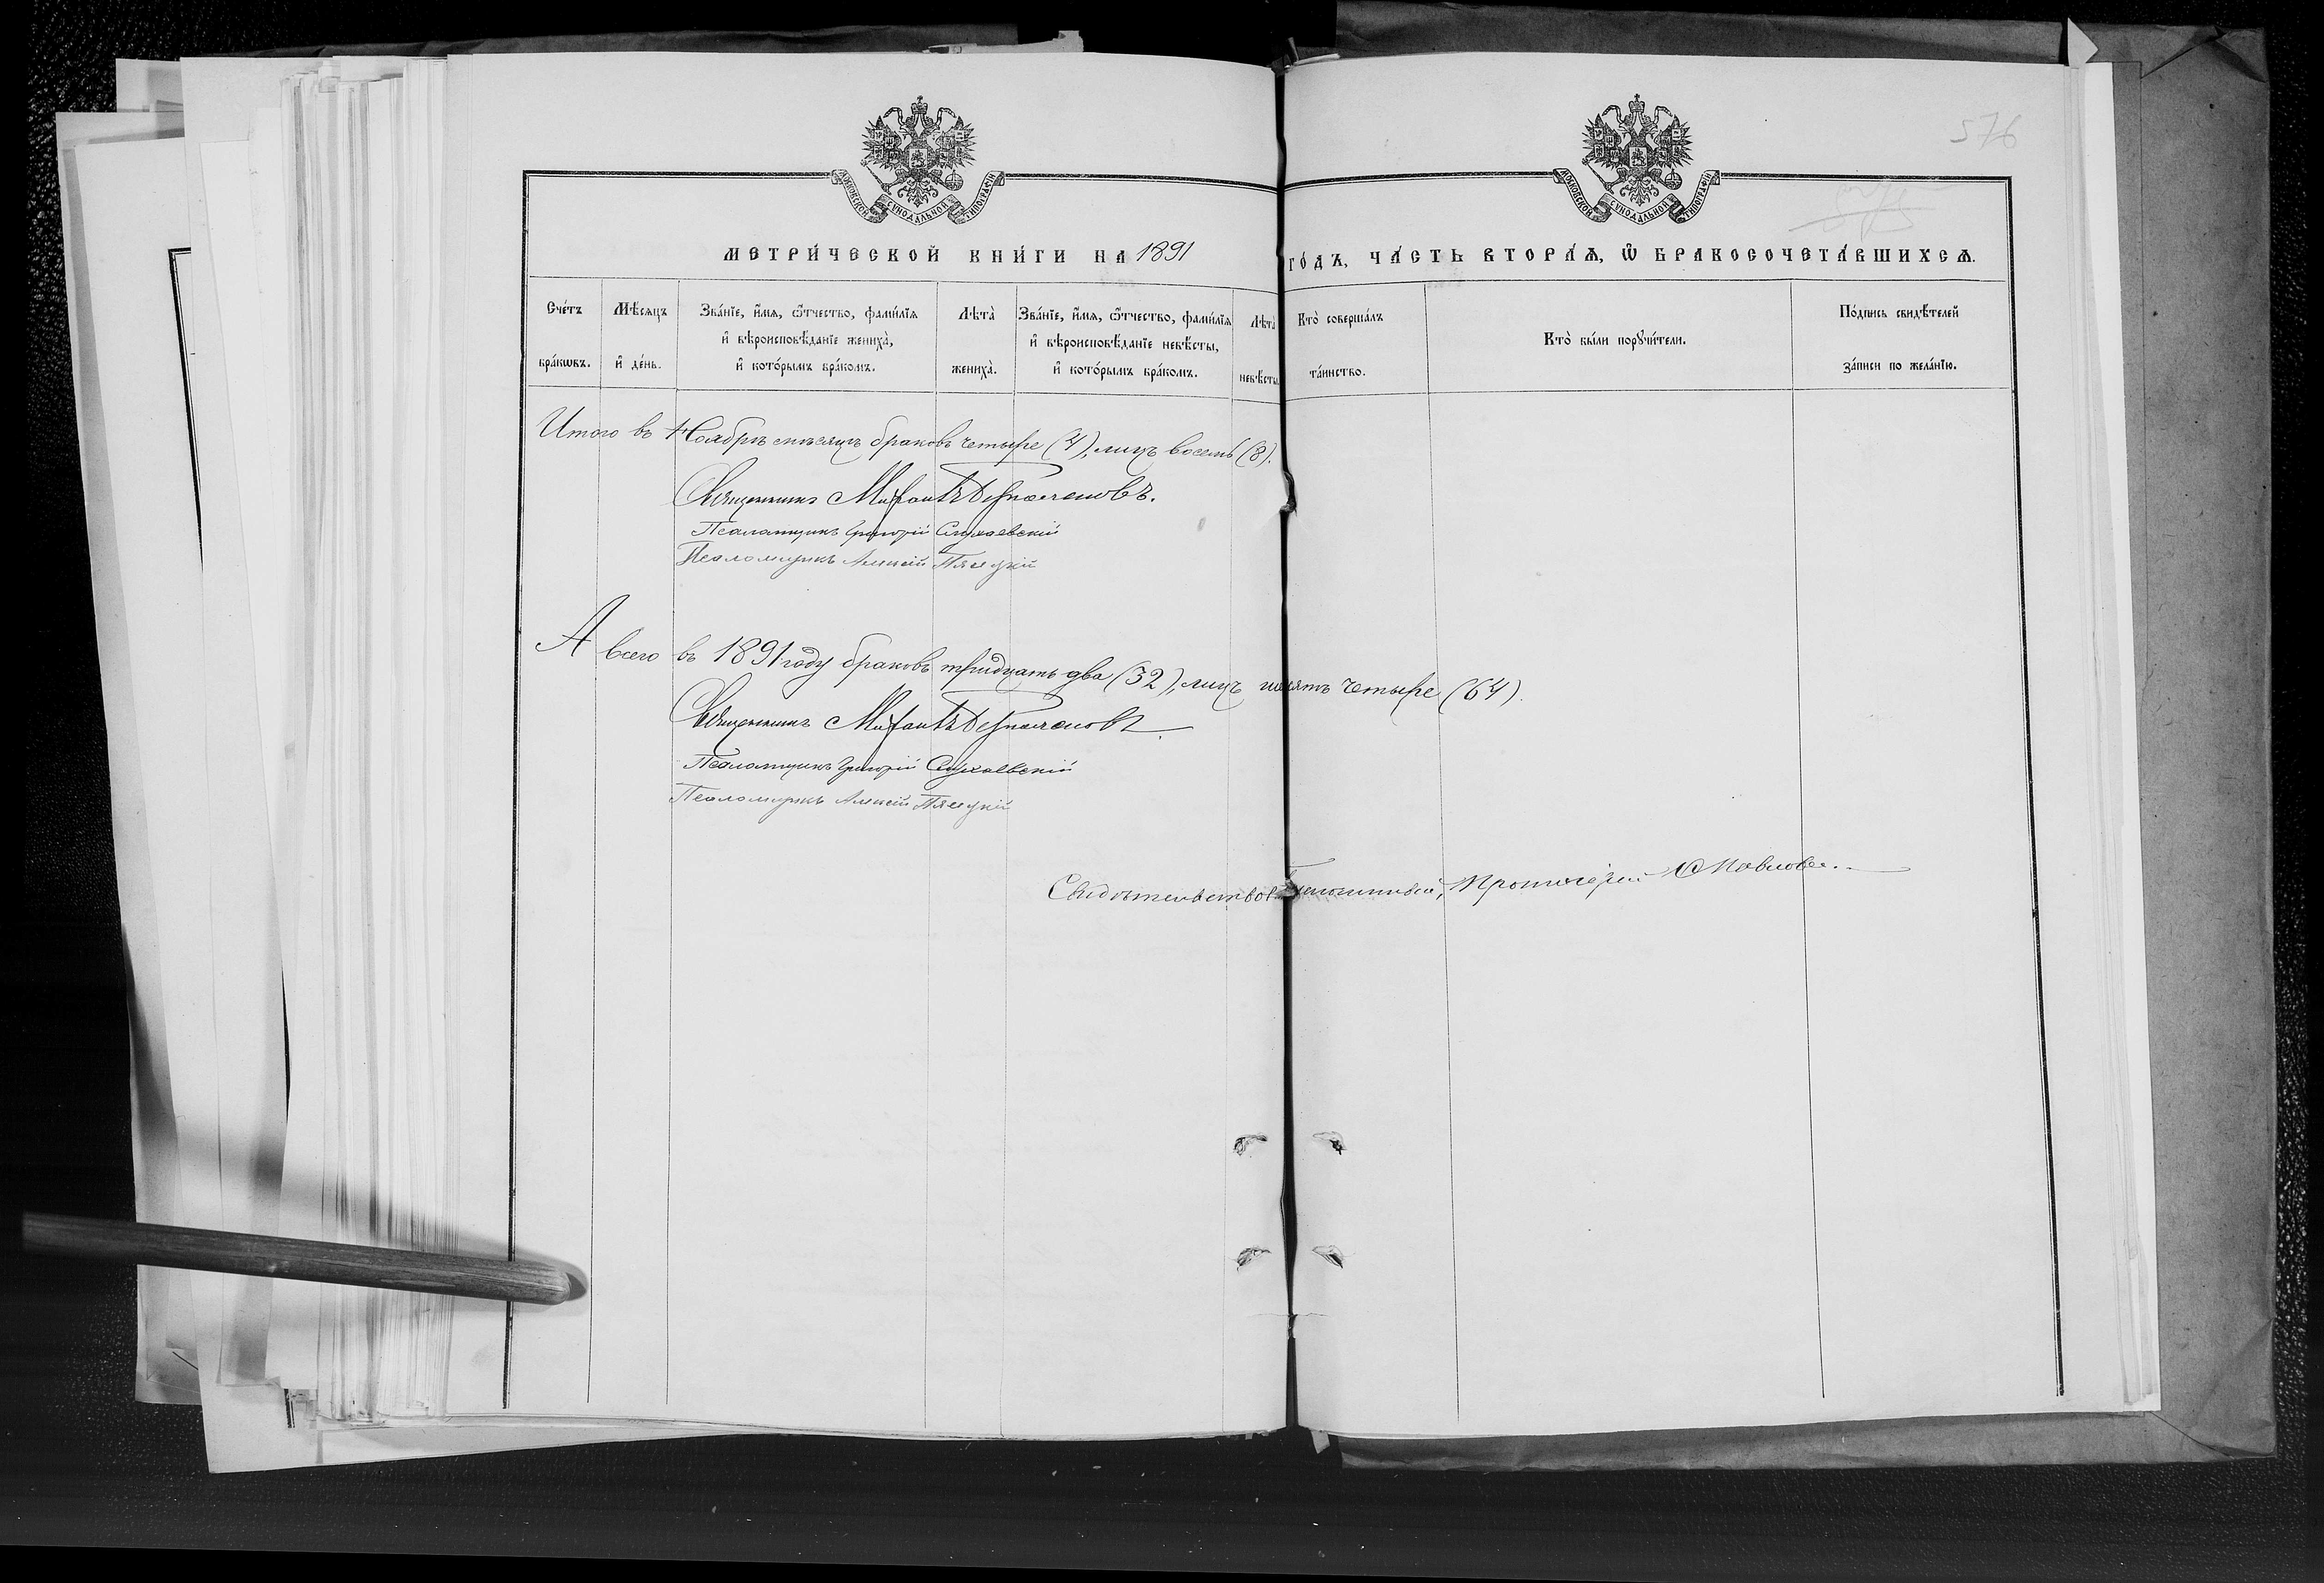 576
МОСКОВСКОЙ СѴНОДАЛЬНОЙ ТИПОГРАФІИ
МОСКОВСКОЙ СѴНОДАЛЬНОЙ ТИПОГРАФІИ
МЕТРИ́ЧЕСКОЙ КНИ́ГИ НА 1891 ГО́ДЪ, ЧА́СТЬ ВТОРА́Ѧ, Ѡ҆ БРАКОСОЧЕТА́ВШИХСѦ.
Сче́тъ бра́кѡвъ.
Мѣ́сяцъ и҆ де́нь.
Зва́нїе, и҆́мѧ, ѻ҆́тчество, фами́лїѧ и҆ вѣроисповѣ́данїе жениха̀, и҆ кото́рымъ бра́комъ.
Лѣта̀ жениха̀.
Зва́нїе, и҆́мѧ, ѻ҆́тчество, фами́лїѧ и҆ вѣроисповѣ́данїе невѣ́сты, и҆ кото́рымъ бра́комъ.
Лѣта̀ невѣ́сты
Кто̀ соверша́лъ та́инство.
Кто̀ бы́ли порꙋчи́тели.
По́дпись свидѣ́телей за́писи по жела́нїю.
Итого въ Ноябрѣ мѣсяцѣ браковъ четыре (4), лицъ восемь (8).
Священникъ Михаилъ
Псаломщикъ Григорій
Псаломщикъ Алексѣй Пясецкій
А всего въ 1891 году браковъ тридцать два (32), лицъ четыре (64).
Священникъ Михаилъ
Псаломщикъ Григорій
Псаломщикъ Алексѣй Пясецкій
Протоіерей